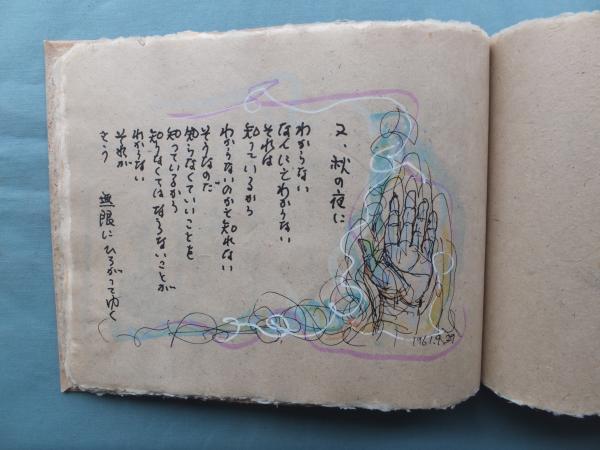 又、秋の夜に
わからない
なんにもわからない
それは
知っているから
わからないのかも知れない
そうなのだ
知らなくていいことを
知っているから
知らなくてはならないことが
わからない
それが
そう　無限にひろがってゆく
1961.9.29